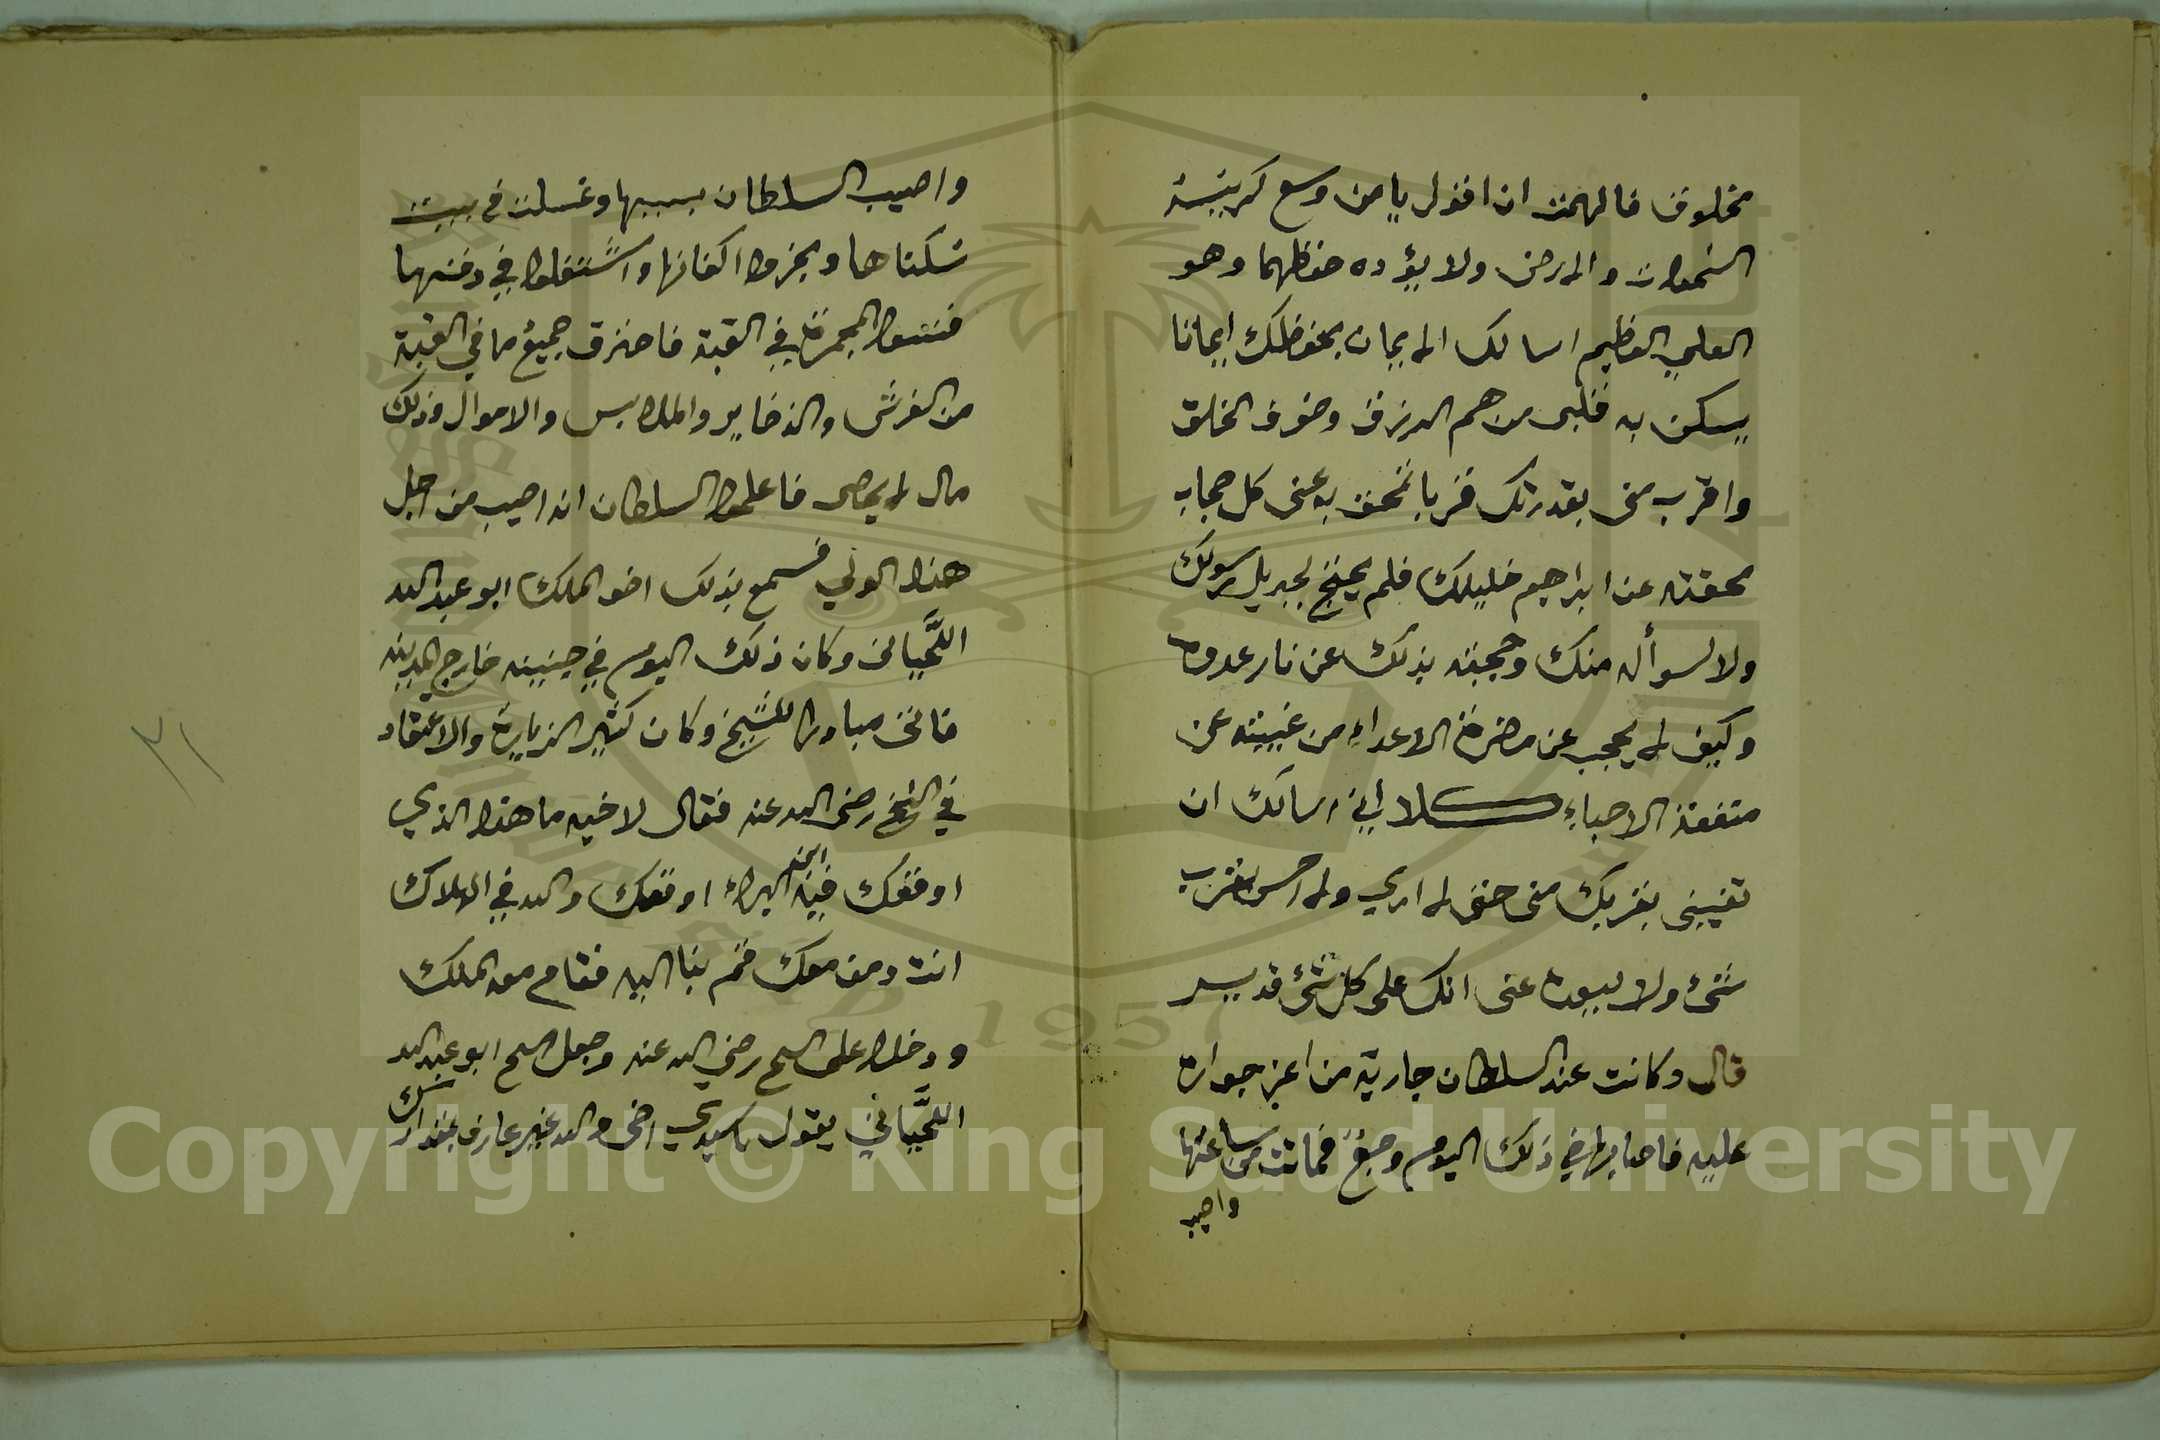 مخلوق فالهمت ان اقول يا من وسع كرسيه
السموات والارض ولا يؤده حفظهما وهو
العلي العظيم اسالك الايمان بحفظك ايمانا
يسكن به قلبى من هم الرزق وخوف الخلق
واقرب منى بقدرتك قربا تمحق به عنى كل حجاب
محقته عن ابراهيم خليلك فلم يحتج لجبريل رسولك
ولا لسوأله منك وحجبته بذلك عن نار عدوه
وكيف لا يحجب عن مضرة الاعداء من غيبته عن
منفعة الاحباء كلا اني اسالك ان
تغيبنى بقربك منى حتى لا اري ولا احس بقرب
شئ ولا ببعده عنى انك على كل شئ قدير
قال وكانت عند السلطان جارية من اعز جواره
عليه فاصابها في ذلك اليوم وجع فماتت من ساعتها
واصيب
واصيب السلطان بسببها وغسلت في بيت
سكناها وبخروا اكفانها واشتغلوا في دفنها
فنسوا المجمرة في القبة فاحترق جميع ما في القبة
من الفرش والذخاير والملابس والاموال وذلك
مال لا يحصى فاعلموا السلطان انه اصيب من اجل
هذا الولي فسمع بذلك اخو الملك ابو عبد الله
اللحياني وكان ذلك اليوم في جنينه خارج المدينه
فاتى مبادرا للشيخ وكان كثير الزيارة والاعتقاد
في الشيخ رضى الله عنه فقال لاخيه ما هذا الذي
اوقعك فيه ابن البرا اوقعك والله في الهلاك
انت ومن معك قم بنا اليه فقام معه الملك
ودخلا على الشيخ رضي الله عنه وجعل الشيخ ابو عبد الله
اللحياني يقول يا سيدي اخى والله غير عارف بمقدارك
٣١
Copyright © King Saud University
1957